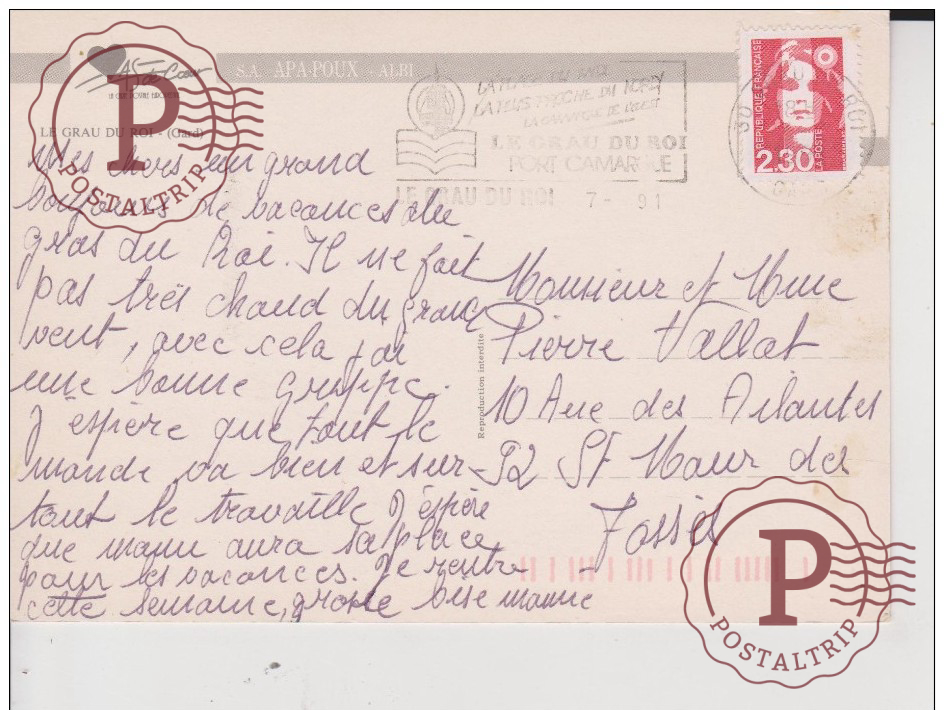 As de Cœur
S.A. APA-POUX - ALBI
LE GRAU DU ROI - (Gard)
LA PLUS PROCHE DU NORD
LE GRAU DU ROI
PORT CAMARGUE
LE GRAU DU ROI 7- 91
REPUBLIQUE FRANÇAISE
2,30
LA POSTE
un grand
de vacances du
gros du Roi. Il ne fait
pas très chaud du grand
vent, avec cela j'ai
une bonne grippe.
J'espère que tout le
monde va bien et sur-
tout le travaille J'espère
que manu aura sa place
pour les vacances. Je rentre
cette semaine, grosse bise manne
Reproduction interdite
Monsieur et Mme
Pierre Vallat
10 Ave des Ailantes
92 St Maur des
Fossés
P
POSTALTRIP
P
POSTALTRIP